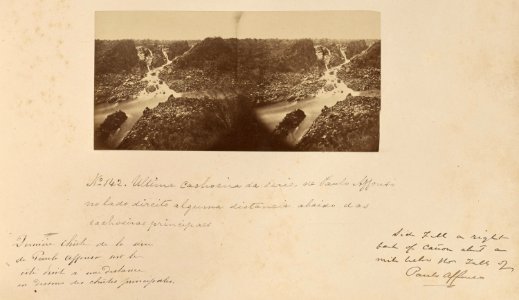 No. 142. Ultima cachoeira da serie de Paulo Affonso
no lado direito alguma distancia abaixo das
cachoeiras principaes
Dernière chute de la série
de Paulo Affonso sur le
côté droit à une distance
en dessous des chûtes principales.
Side Fall on right
bank of Cañon abt a
mile below the Falls of
Paulo Affonso